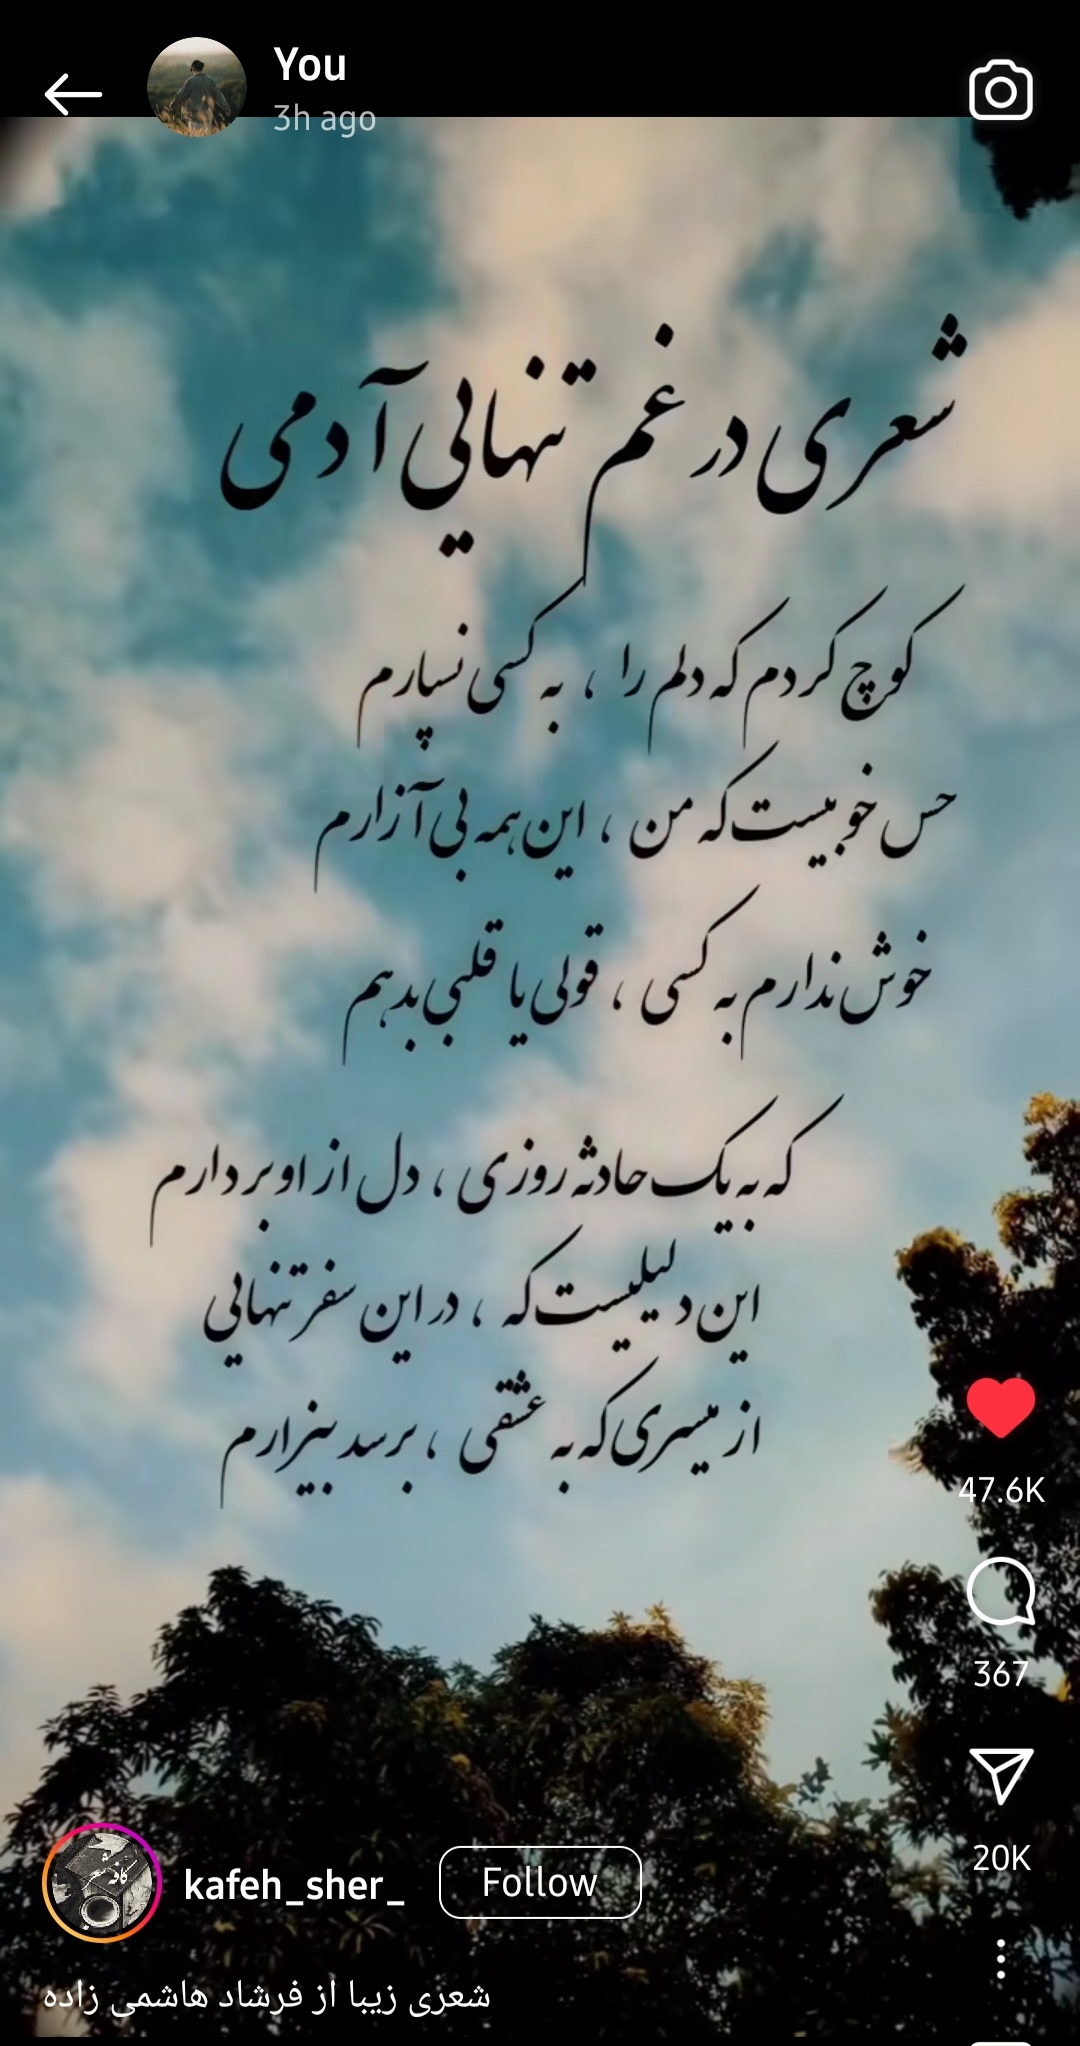 You
3h ago
شعری در غم تنهایی آدمی
کوچ کردم که دلم را ، به کسی نسپارم
حس خوبیست که من ، این همه بی آزارم
خوش ندارم به کسی ، قولی یا قلبی بدهم
که به یک حادثه روزی ، دل از او بردارم
این دلیلیست که ، در این سفر تنهایی
از مسیری که به عشقی ، برسد بیزارم
47.6K
367
20K
kafeh_sher_
Follow
شعری زیبا از فرشاد هاشمی زاده